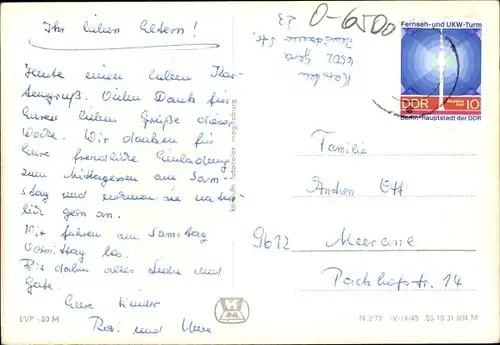 Ihr lieben Eltern!
Heute einen lieben Kar-
tengruß. Vielen Dank für
Euren lieben Grüße diese
Woche. Wir danken für
Eure freundliche Einladung
zum Mittagessen am Sam-
stag und nehmen sie natür-
lich gern an.
Wir fahren am Samstag
Vormittag los.
Bis dahin alles Liebe und
Gute.
Eure Kinder
Rosi und Uwe
EVP -.20 M
O-6500
6502 Gera
Str.
23
Fernseh- und UKW-Turm
DDR 10
Berlin-Hauptstadt der DDR
Familie
Andreas Ott
9612 Meerane
Packhofstr. 14
IV-14-45 05 10 31 004 M